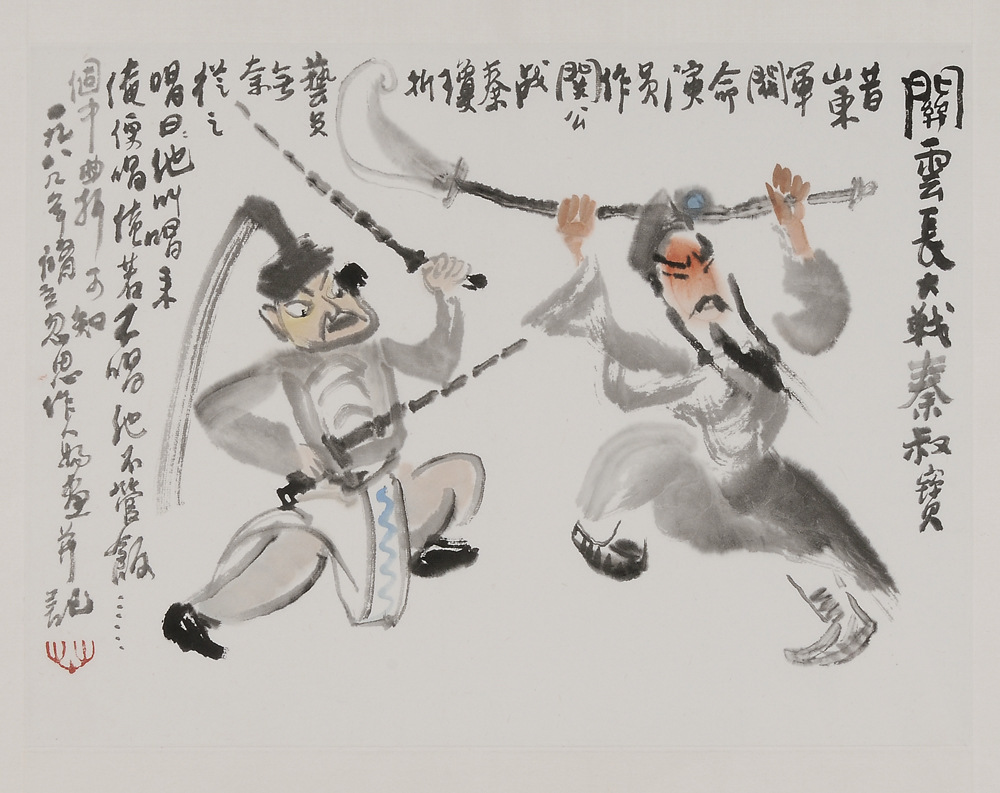 關雲長大戰秦叔寶
昔山東軍閥命演员作關公战秦瓊折
藝员
無奈
從之
唱曰:他叫唱来
俺便唱俺若不唱他不管飯……
個中曲折可知
一九八年忽思作人物畫并記